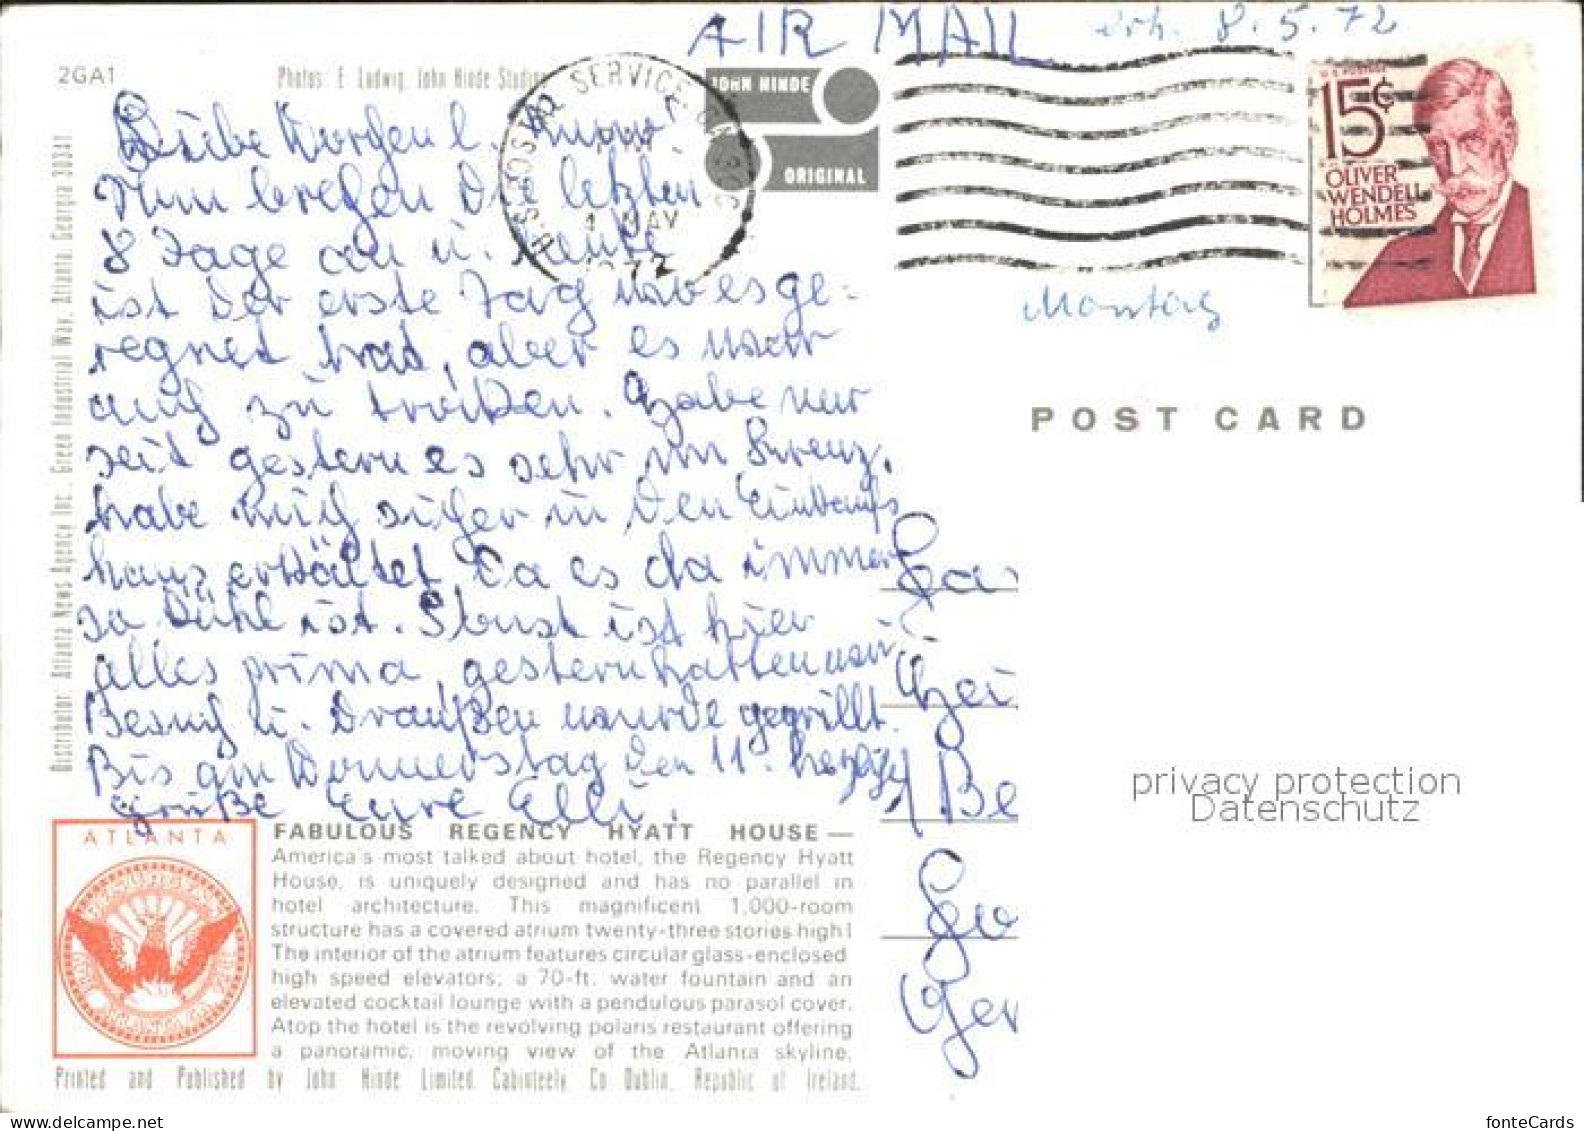 AIR MAIL erh. 8.5.72
2GA1 Photos: E. Ludwig, John Hinde Studios
JOHN HINDE
ORIGINAL
U.S. POSTAL SERVICE
4 MAY
1972
U.S. POSTAGE
15¢
OLIVER
WENDELL
HOLMES
Montag
POST CARD
Distributor: Atlanta News Agency Inc., Green Industrial Way, Atlanta, Georgia 30341
Nun brechen die letzten
8 Tage an u. heute
ist der erste Tag wo es ge-
regnet hat, aber es war
auch zu trocken. Habe nur
seit gestern es sehr im Kreuz,
habe mich sicher in den Einkaufs
haus erkältet, da es da immer
so kühl ist. Sonst ist hier
alles prima, gestern hatten wir
Besuch u. draußen wurde gegrillt.
Bis am Donnerstag den 11. herzliche
Grüße Eure Elli.
privacy protection
Datenschutz
ATLANTA
FABULOUS REGENCY HYATT HOUSE —
America's most talked about hotel, the Regency Hyatt
House, is uniquely designed and has no parallel in
hotel architecture. This magnificent 1,000-room
structure has a covered atrium twenty-three stories high!
The interior of the atrium features circular glass-enclosed
high speed elevators; a 70-ft. water fountain and an
elevated cocktail lounge with a pendulous parasol cover.
Atop the hotel is the revolving polaris restaurant offering
a panoramic, moving view of the Atlanta skyline.
Printed and Published by John Hinde Limited, Cabinteely, Co Dublin, Republic of Ireland.
fonteCards